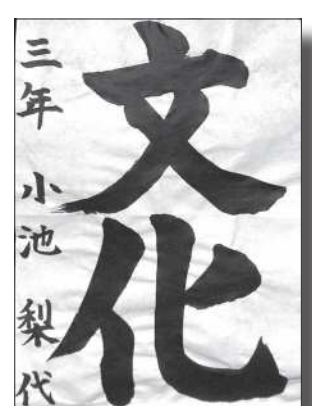 文化
三年 小池 梨代